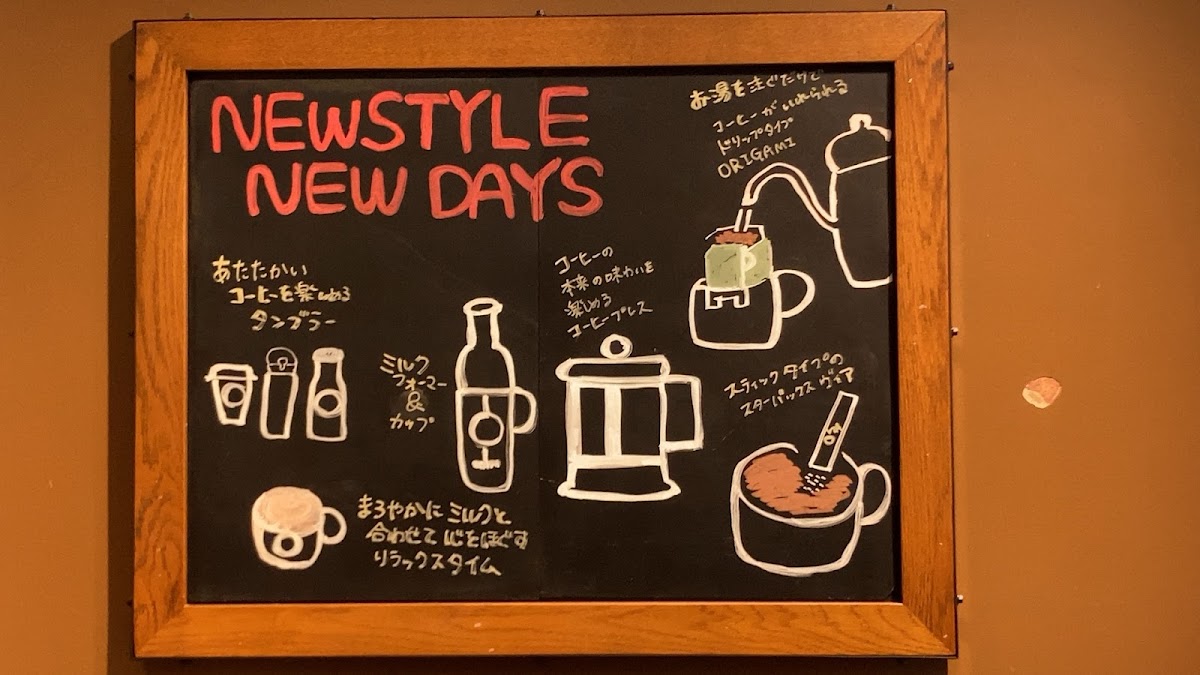 NEWSTYLE
NEW DAYS
お湯を注ぐだけで
コーヒーがいれられる
ドリップタイプ
ORIGAMI
あたたかい
コーヒーを楽しめる
タンブラー
ミルク
フォーマー
&
カップ
コーヒーの
本来の味わいを
楽しめる
コーヒープレス
スティックタイプの
スターバックス ヴィア
まろやかに ミルクと
合わせて 心をほぐす
リラックスタイム